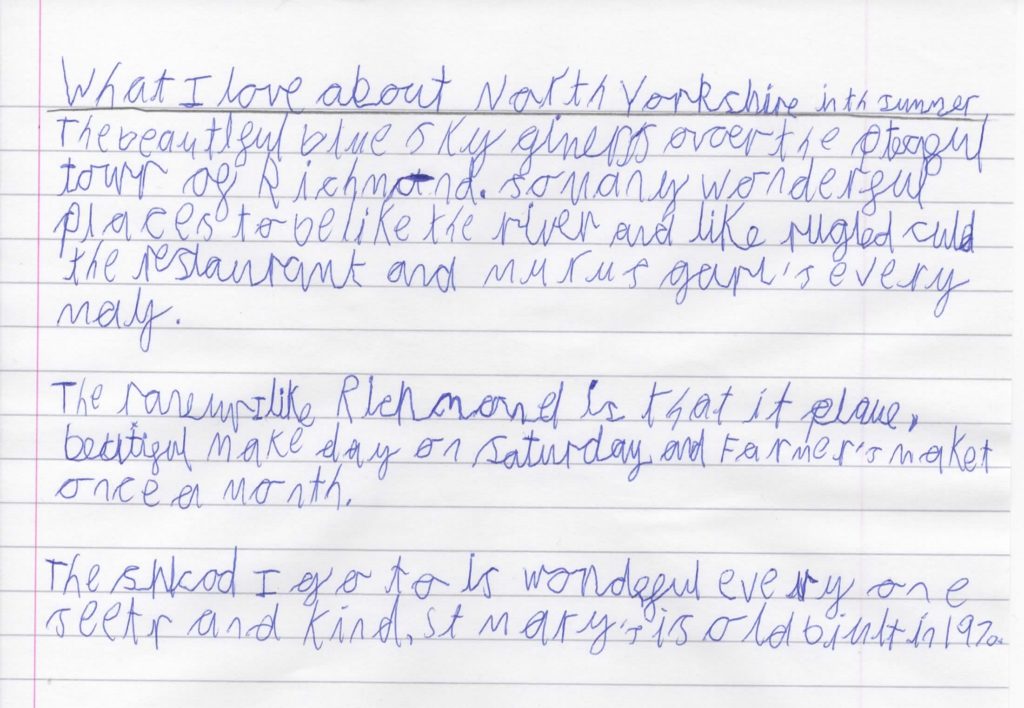 What I love about North Yorkshire in th summer
The beautiful blue sky over the
town of Richmond. so many wonderful
places to be like the river and like
the restaurant and every
may.
The I like Richmond is that it
make day on Saturday and Farmer's maket
once a month.
The I go to is wondeful every one
and kind. St mary's is old built in